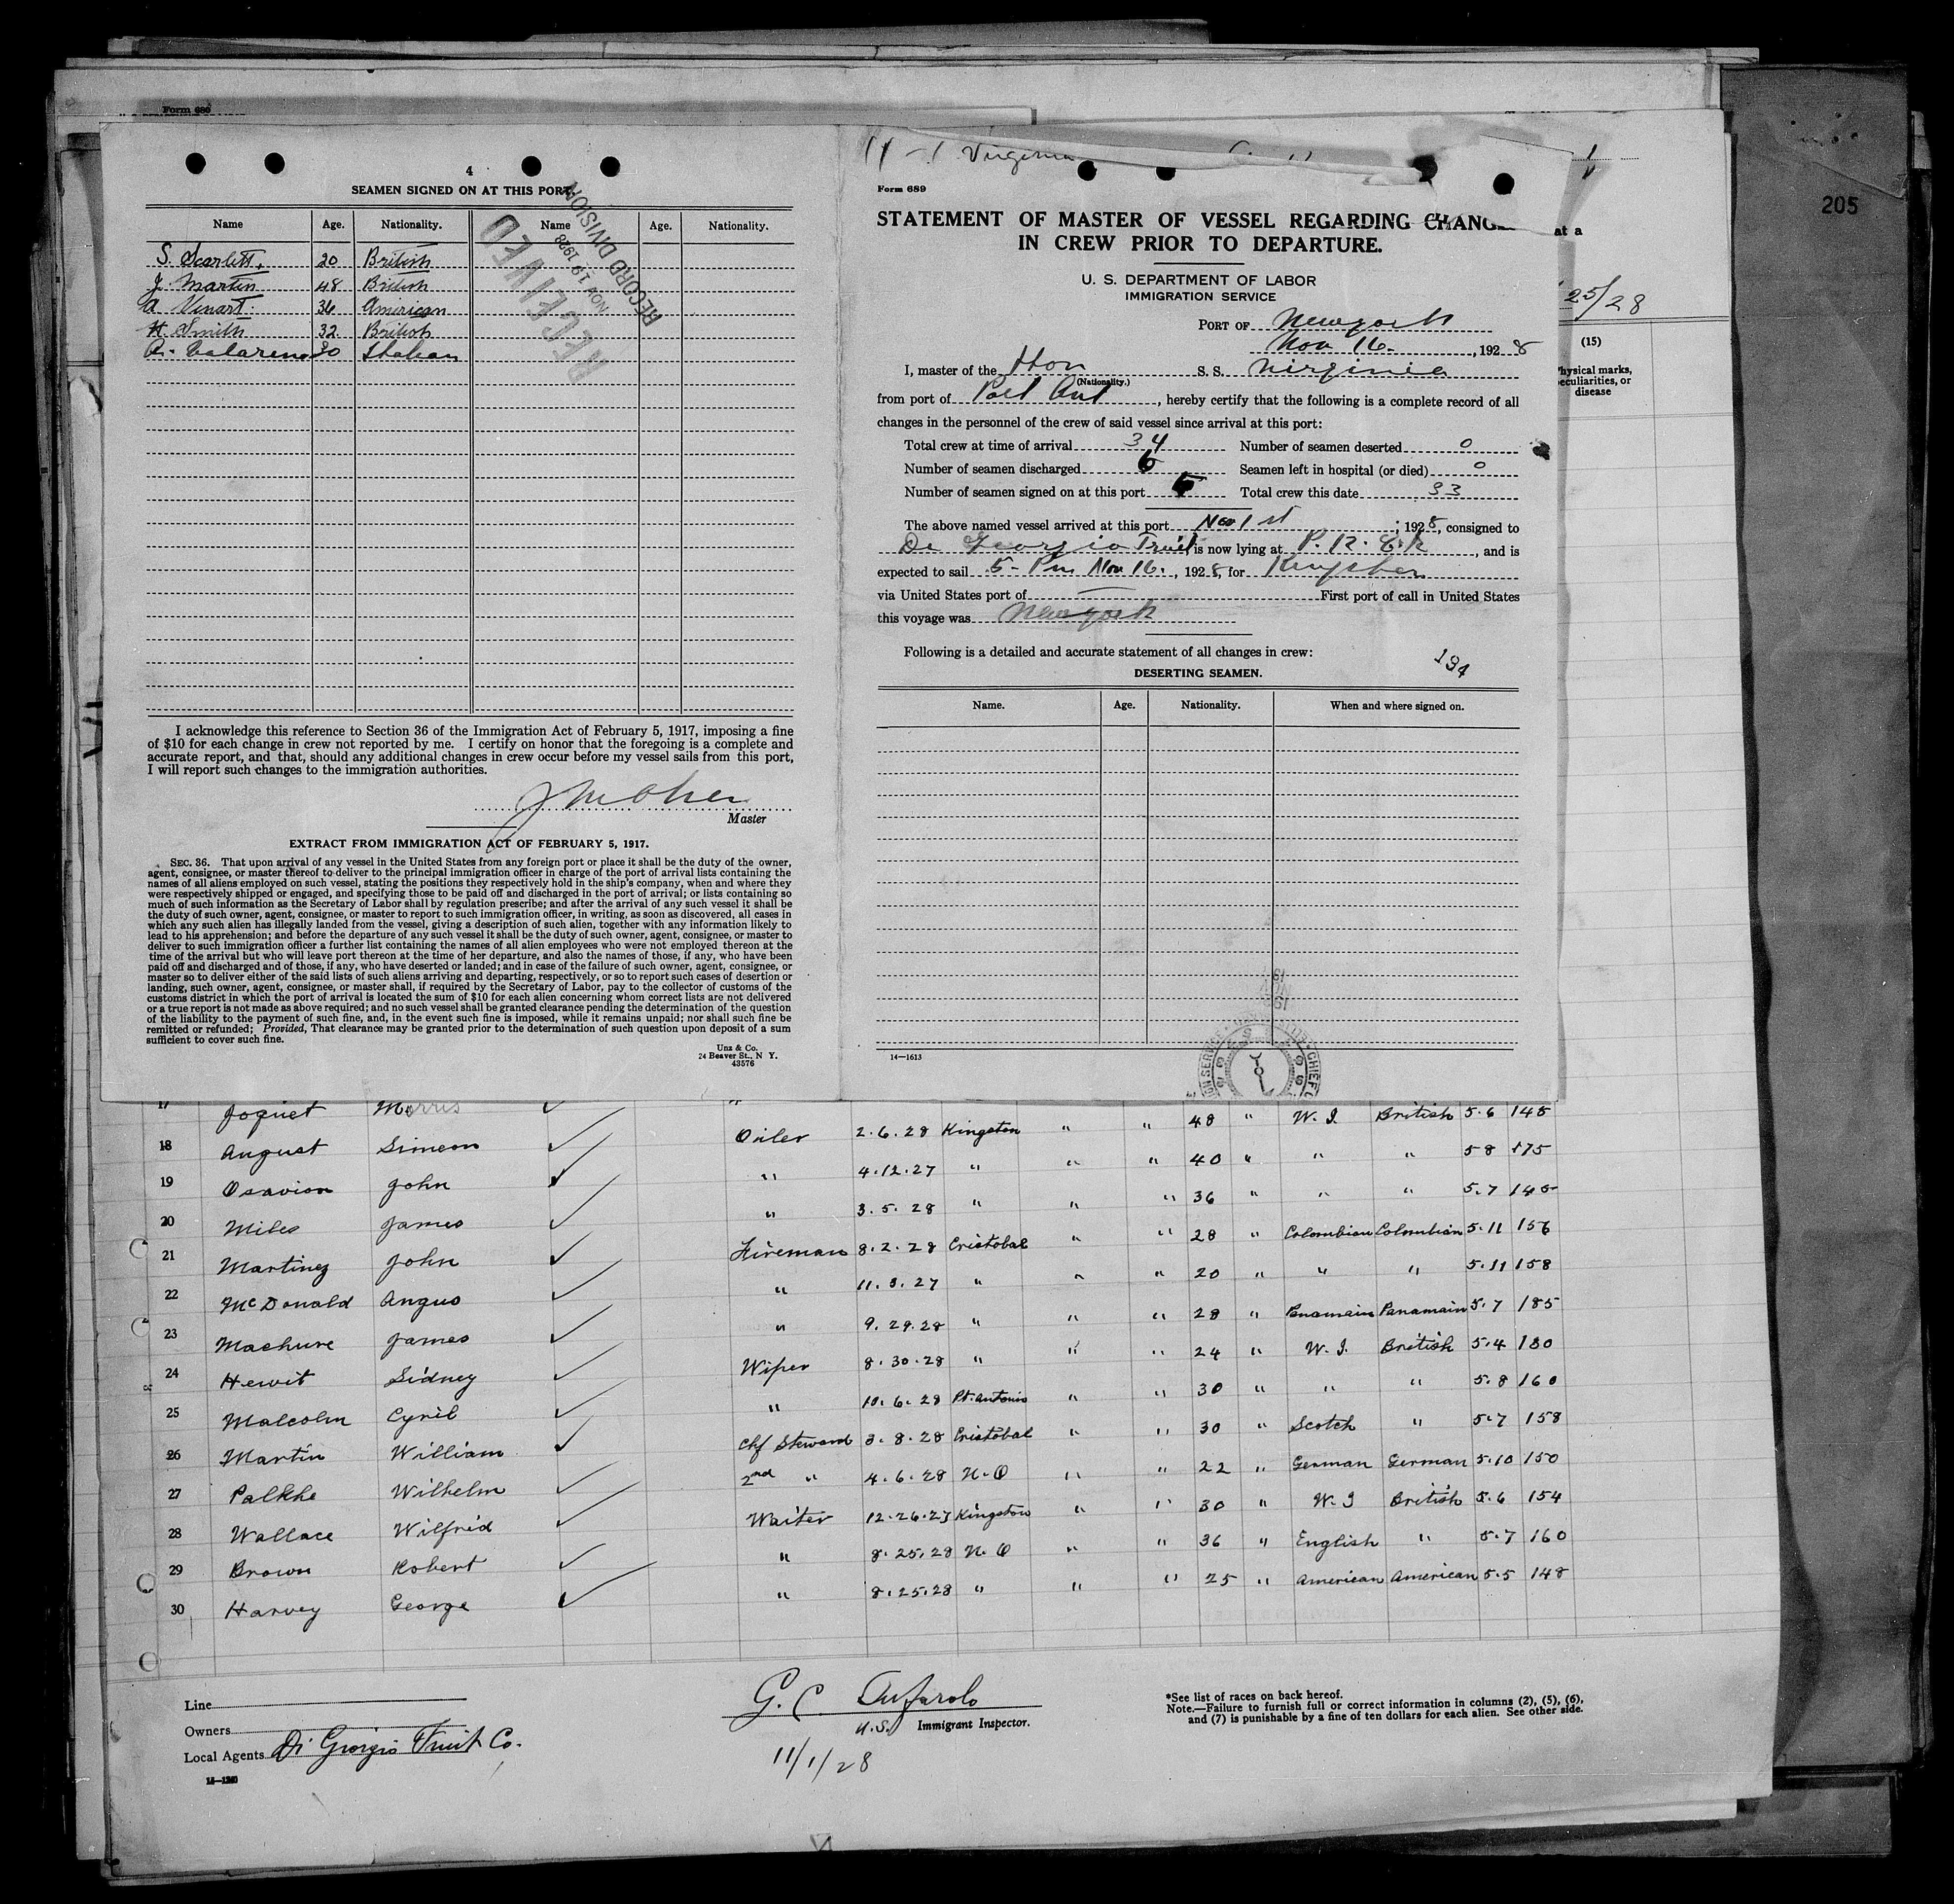 Form 689
4
SEAMEN SIGNED ON AT THIS PORT.
Name Age. Nationality. Name Age. Nationality.
S. Scarlett. 20 British
J. Martin 48 British
A Venart. 36 American
H. Smith 32 British
30
RECEIVED
NOV 19 1928
RECORD DIVISION
I acknowledge this reference to Section 36 of the Immigration Act of February 5, 1917, imposing a fine
of $10 for each change in crew not reported by me. I certify on honor that the foregoing is a complete and
accurate report, and that, should any additional changes in crew occur before my vessel sails from this port,
I will report such changes to the immigration authorities.
Master
EXTRACT FROM IMMIGRATION ACT OF FEBRUARY 5, 1917.
SEC. 36. That upon arrival of any vessel in the United States from any foreign port or place it shall be the duty of the owner,
agent, consignee, or master thereof to deliver to the principal immigration officer in charge of the port of arrival lists containing the
names of all aliens employed on such vessel, stating the positions they respectively hold in the ship's company, when and where they
were respectively shipped or engaged, and specifying those to be paid off and discharged in the port of arrival; or lists containing so
much of such information as the Secretary of Labor shall by regulation prescribe; and after the arrival of any such vessel it shall be
the duty of such owner, agent, consignee, or master to report to such immigration officer, in writing, as soon as discovered, all cases in
which any such alien has illegally landed from the vessel, giving a description of such alien, together with any information likely to
lead to his apprehension; and before the departure of any such vessel it shall be the duty of such owner, agent, consignee, or master to
deliver to such immigration officer a further list containing the names of all alien employees who were not employed thereon at the
time of the arrival but who will leave port thereon at the time of her departure, and also the names of those, if any, who have been
paid off and discharged and of those, if any, who have deserted or landed; and in case of the failure of such owner, agent, consignee, or
master so to deliver either of the said lists of such aliens arriving and departing, respectively, or so to report such cases of desertion or
landing, such owner, agent, consignee, or master shall, if required by the Secretary of Labor, pay to the collector of customs of the
customs district in which the port of arrival is located the sum of $10 for each alien concerning whom correct lists are not delivered
or a true report is not made as above required; and no such vessel shall be granted clearance pending the determination of the question
of the liability to the payment of such fine, and, in the event such fine is imposed, while it remains unpaid; nor shall such fine be
remitted or refunded; Provided, That clearance may be granted prior to the determination of such question upon deposit of a sum
sufficient to cover such fine.
Unz & Co.
24 Beaver St., N Y.
43576
Virginia
Form 689
STATEMENT OF MASTER OF VESSEL REGARDING CHANG
IN CREW PRIOR TO DEPARTURE.
U. S. DEPARTMENT OF LABOR
IMMIGRATION SERVICE
PORT OF Newyork
Nov 16. , 192 8
I, master of the Hon S. S. Virginia
(Nationality.)
from port of Port Ant , hereby certify that the following is a complete record of all
changes in the personnel of the crew of said vessel since arrival at this port:
Total crew at time of arrival 34 Number of seamen deserted 0
Number of seamen discharged 6 Seamen left in hospital (or died) 0
Number of seamen signed on at this port 5 Total crew this date 33
The above named vessel arrived at this port Nov 1 st ; 192 8, consigned to
De Georgio Fruit is now lying at , and is
expected to sail 5- Pm Nov 16. , 192 8, for
via United States port of First port of call in United States
this voyage was Newyork
Following is a detailed and accurate statement of all changes in crew:
194
DESERTING SEAMEN.
Name. Age. Nationality. When and where signed on.
14—1613
at a
25/28
(15)
Physical marks,
peculiarities, or
disease
205
17 Joquet Morris " 48 " W. I. British 5.6 148
18 August Simeon Oiler 2.6.28 Kingston " " 40 " " " 5 8 175
19 Osavion John " 4.12.27 " " " 36 " " " 5.7 145
20 Miles James " 3.5.28 " " " 28 " Colombian Colombian 5.11 156
21 Martinez John Fireman 8.2.28 Cristobal " " 20 " " " 5.11 158
22 McDonald Angus " 11.3.27 " " " 28 " Panamain Panamain 5.7 185
23 Machure James " 9.29.28 " " " 24 " W. I. British 5.4 130
24 Hewit Sidney Wiper 8.30.28 " " " 30 " " " 5.8 160
25 Malcolm Cyril " 10.6.28 Pt. Antonio " " 30 " Scotch " 5.7 158
26 Martin William Chf Steward 3.8.28 Cristobal " " 22 " German German 5.10 150
27 Palkhe Wilhelm 2nd " 4.6.28 N.O " " 30 " W. I British 5.6 154
28 Wallace Wilfrid Waiter 12.26.27 Kingston " " 36 " English " 5.7 160
29 Brown Robert " 8.25.28 N.O " " 25 " American American 5.5 148
30 Harvey George " 8.25.28 " " "
Line
Owners
Local Agents Di Giorgio Fruit Co.
14—1240
G. C.
U.S. Immigrant Inspector.
11/1/28
*See list of races on back hereof.
Note.—Failure to furnish full or correct information in columns (2), (5), (6),
and (7) is punishable by a fine of ten dollars for each alien. See other side.